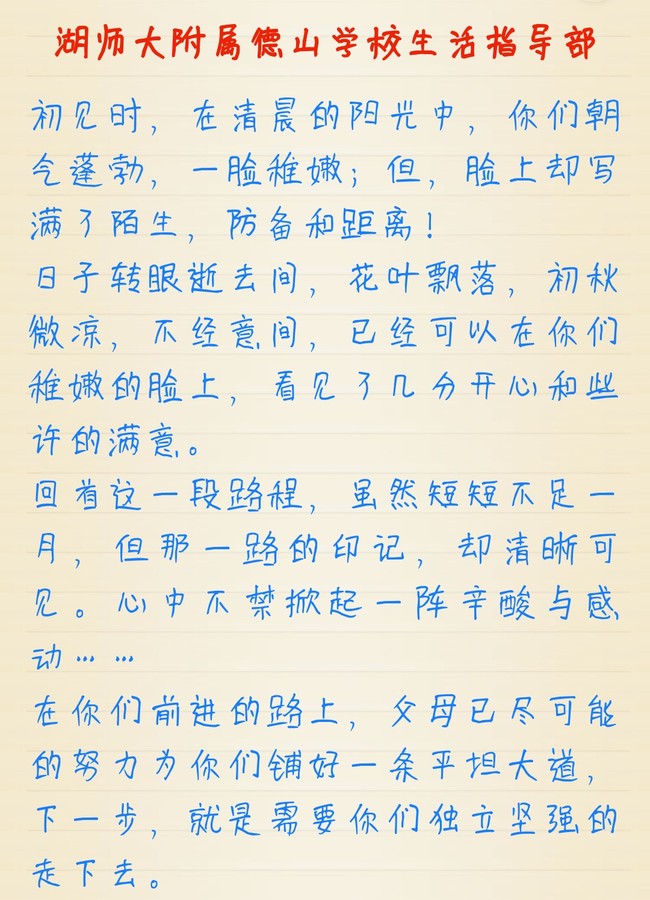 湖师大附属德山学校生活指导部
初见时，在清晨的阳光中，你们朝
气蓬勃，一脸稚嫩；但，脸上却写
满了陌生，防备和距离！
日子转眼逝去间，花叶飘落，初秋
微凉，不经意间，已经可以在你们
稚嫩的脸上，看见了几分开心和些
许的满意。
回首这一段路程，虽然短短不足一
月，但那一路的印记，却清晰可
见。心中不禁掀起一阵辛酸与感
动……
在你们前进的路上，父母已尽可能
的努力为你们铺好一条平坦大道，
下一步，就是需要你们独立坚强的
走下去。